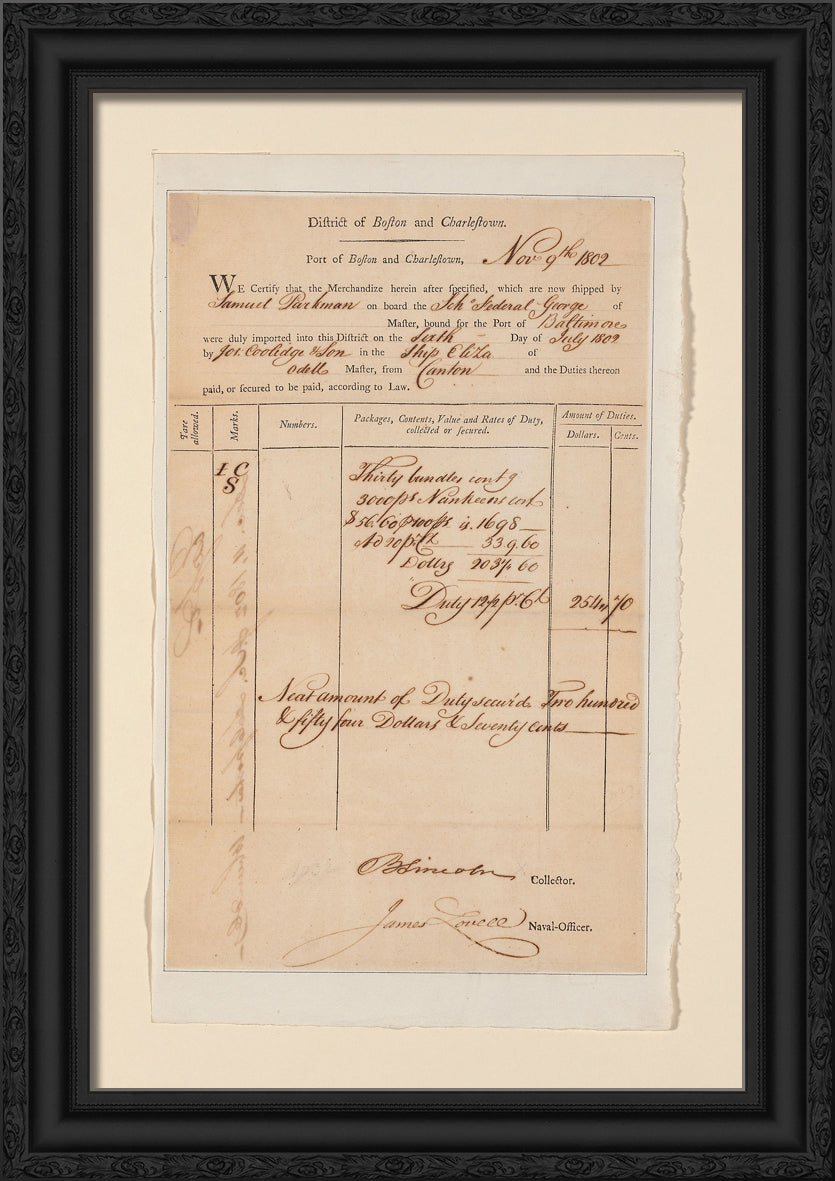 Diſtrict of Boſton and Charleſtown.
Port of Boſton and Charleſtown, Nov 9th 1802
WE Certify that the Merchandize herein after ſpecified, which are now ſhipped by
Samuel Parkman on board the Schr Federal George of
Maſter, bound for the Port of Baltimore
were duly imported into this Diſtrict on the Sixth Day of July 1802
by Jos. Coolidge & Son in the Ship Eliza of
Odell Maſter, from Canton and the Duties thereon
paid, or ſecured to be paid, according to Law.
Tare allowed.
Marks.
Numbers.
Packages, Contents, Value and Rates of Duty, collected or ſecured.
Amount of Duties.
Dollars. Cents.
I C
S
Thirty bundles contg
3000 ps Nankeens cost
$56.60 p 100 ps is 1698
Ad 20 p Ct 339.60
Dollrs 2037.60
Duty 12½ pr Ct 254 70
Neat amount of Duty secur'd Two hundred
& fifty four Dollars & Seventy Cents
B Lincoln Collector.
James Lovell Naval-Officer.